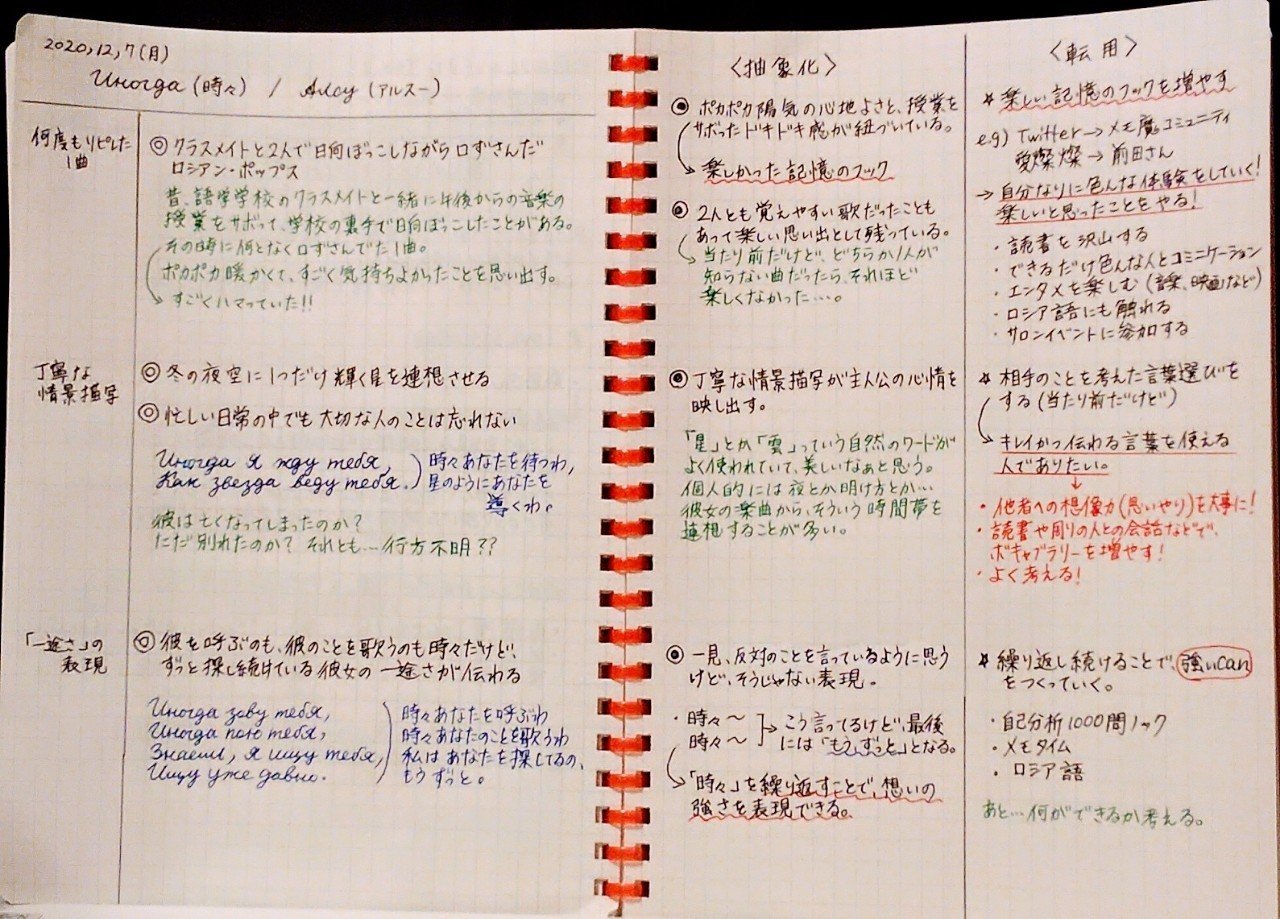 2020,12,7(月)
Иногда (時々) / Алсу (アルスー)
何度もリピした
1曲
◎ クラスメイトと2人で日向ぼっこしながら口ずさんだ
ロシアン・ポップス
昔、語学学校のクラスメイトと一緒に午後からの音楽の
授業をサボって、学校の裏手で日向ぼっこしたことがある。
その時に何となく口ずさんでた1曲。
ポカポカ暖かくて、すごく気持ちよかったことを思い出す。
すごくハマっていた!!
丁寧な
情景描写
◎ 冬の夜空に1つだけ輝く星を連想させる
◎ 忙しい日常の中でも大切な人のことは忘れない
Иногда я жду тебя,
Как звезда веду тебя.
時々あなたを待つわ,
星のようにあなたを
導くわ。
彼は亡くなってしまったのか?
ただ別れたのか? それとも…行方不明??
「一途さ」の
表現
◎ 彼を呼ぶのも、彼のことを歌うのも時々だけど、
ずっと探し続けている彼女の一途さが伝わる
Иногда зову тебя,
Иногда пою тебя,
Знаешь, я ищу тебя,
Ищу уже давно.
時々あなたを呼ぶわ
時々あなたのことを歌うわ
私はあなたを探してるの、
もうずっと。
〈抽象化〉
◉ ポカポカ陽気の心地よさと、授業を
サボったドキドキ感が紐づいている。
楽しかった記憶のフック
◉ 2人とも覚えやすい歌だったことも
あって楽しい思い出として残っている。
当たり前だけど、どちらか1人が
知らない曲だったら、それほど
楽しくなかった…。
◉ 丁寧な情景描写が主人公の心情を
映し出す。
「星」とか「雲」っていう自然のワードが
よく使われていて、美しいなぁと思う。
個人的には夜とか明け方とか…
彼女の楽曲から、そういう時間帯を
連想することが多い。
◉ 一見、反対のことを言っているように思う
けど、そうじゃない表現。
・時々〜
時々〜
こう言ってるけど、最後
には「もうずっと」となる。
「時々」を繰り返すことで、想いの
強さを表現できる。
〈転用〉
★ 楽しい記憶のフックを増やす
e.g) Twitter→メモ魔コミュニティ
愛燦燦→前田さん
→ 自分なりに色んな体験をしていく!
楽しいと思ったことをやる!
・読書を沢山する
・できるだけ色んな人とコミニケーション
・エンタメを楽しむ(音楽、映画など)
・ロシア語にも触れる
・サロンイベントに参加する
★ 相手のことを考えた言葉選びを
する(当たり前だけど)
キレイかつ伝わる言葉を使える
人でありたい。
・他者への想像力(思いやり)を大事に!
・読書や周りの人との会話などで、
ボキャブラリーを増やす!
・よく考える!
★ 繰り返し続けることで、強いcan
をつくっていく。
・自己分析1000問ノック
・メモタイム
・ロシア語
あと…何ができるか考える。